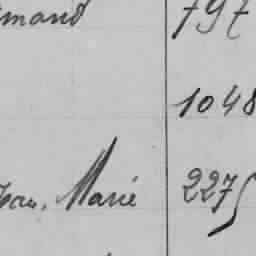 mand 797
1048
Jean, Marie 2275